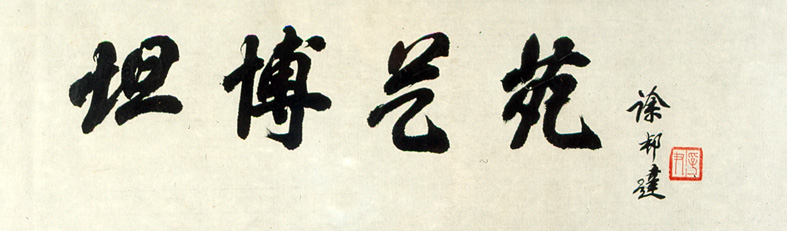 坦博艺苑
徐邦達